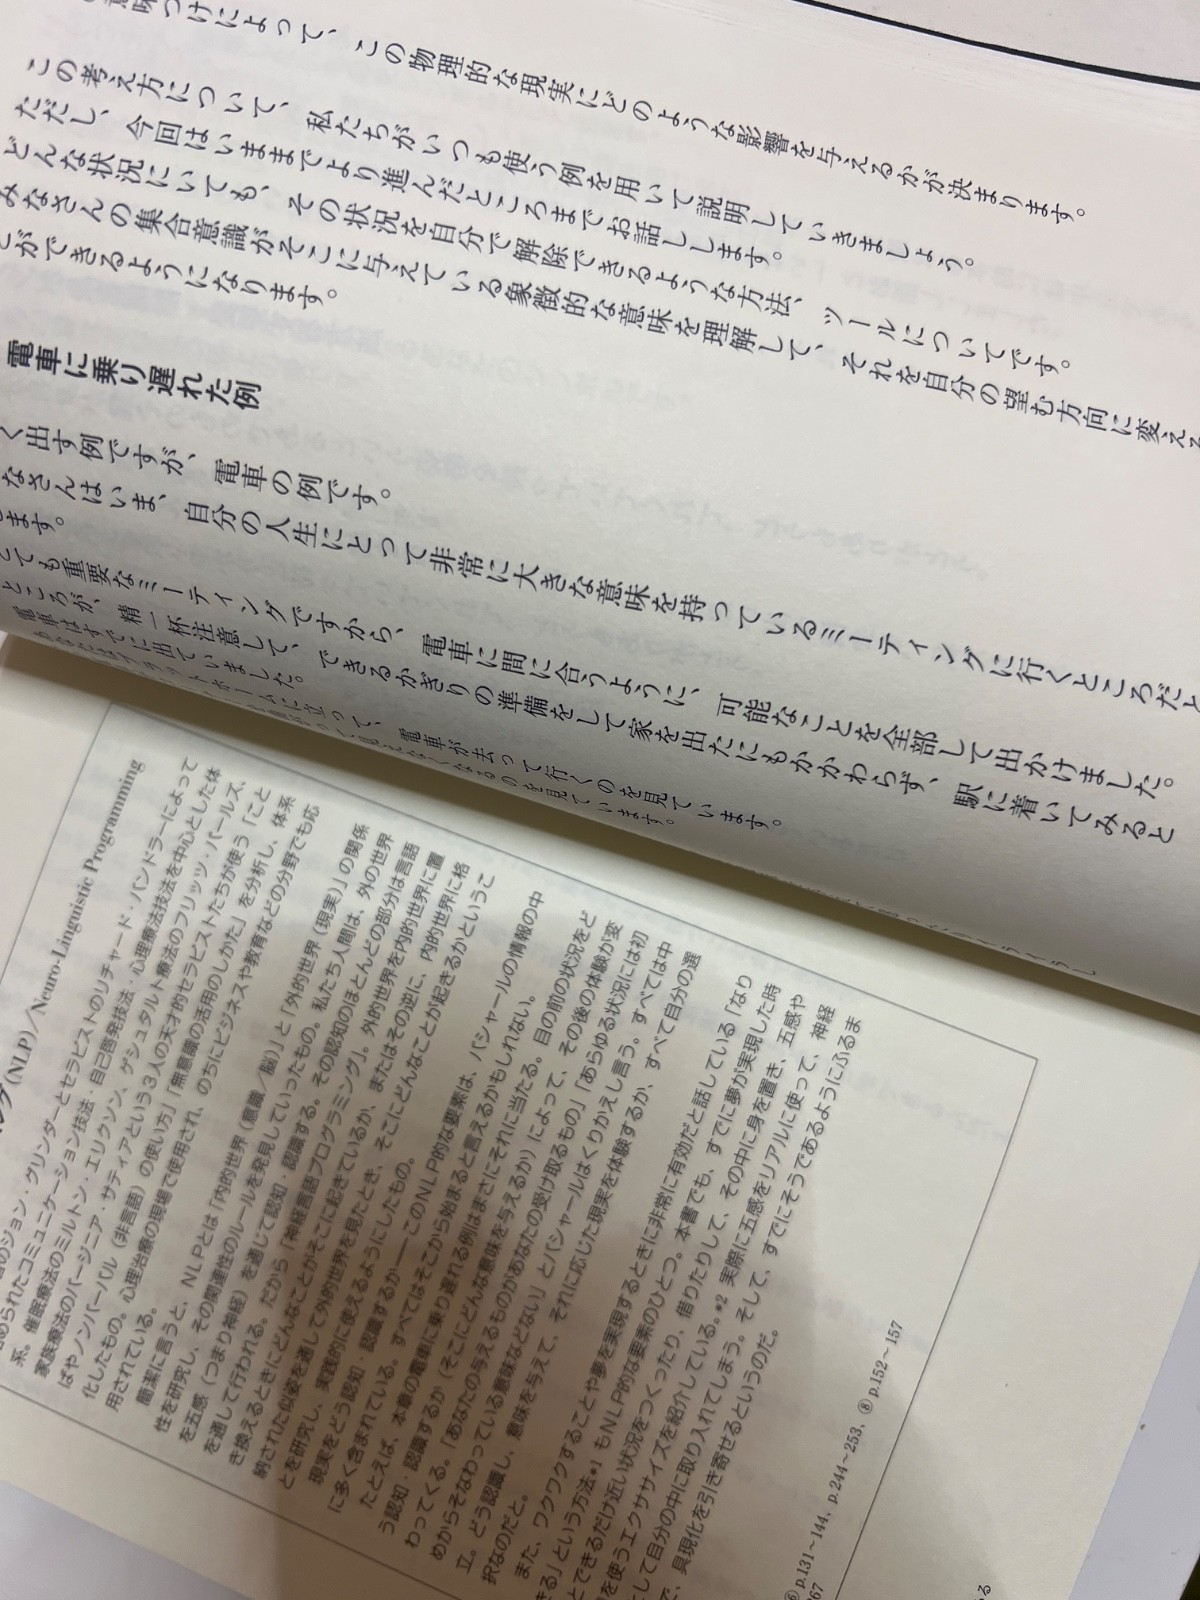 意味づけによって、この物理的な現実にどのような影響を与えるかが決まります。
この考え方について、私たちがいつも使う例を用いて説明していきましょう。
ただし、今回はいままでより進んだところまでお話しします。
どんな状況にいても、その状況を自分で解除できるような方法、ツールについてです。
みなさんの集合意識がそこに与えている象徴的な意味を理解して、それを自分の望む方向に変える
とができるようになります。
電車に乗り遅れた例
く出す例ですが、電車の例です。
なさんはいま、自分の人生にとって非常に大きな意味を持っているミーティングに行くところだと
します。
とても重要なミーティングですから、電車に間に合うように、可能なことを全部して出かけました。
ところが、精一杯注意して、できるかぎりの準備をして家を出たにもかかわらず、駅に着いてみると
電車はすでに出ていました。
あなたはプラットホームに立って、電車が去って行くのを見ています。
見えなくなるのを見ています。
(NLP)/Neuro-Linguistic Programming
のジョン・グリンダーとセラピストのリチャード・バンドラーによって
始められたコミュニケーション技法・自己啓発技法・心理療法技法を中心とした体
系。催眠療法のミルトン・エリクソン、ゲシュタルト療法のフリッツ・パールズ、
家族療法のバージニア・サティアという3人の天才的セラピストたちが使う「こと
ばやノンバーバル（非言語）の使い方」「無意識の活用のしかた」を分析し、体系
化したもの。心理治療の現場で使用され、のちにビジネスや教育などの分野でも応
用されている。
簡潔に言うと、NLPとは「内的世界（意識／脳）」と「外的世界（現実）」の関係
性を研究し、その関連性のルールを発見していったもの。私たち人間は、外の世界
を五感（つまり神経）を通じて認知・認識する。その認知のほとんどの部分は言語
を通して行われる。だから「神経言語プログラミング」。外的世界を内的世界に置
き換えるときにどんなことがそこに起きているか、またはその逆に、内的世界に格
納された似姿を通して外的世界を見たとき、そこにどんなことが起きるかというこ
とを研究し、実践的に使えるようにしたもの。
現実をどう認知・認識するか――このNLP的な要素は、バシャールの情報の中
に多く含まれている。すべてはそこから始まると言えるかもしれない。
たとえば、本章の電車に乗り遅れる例はまさにそれに当たる。目の前の状況をど
う認知・認識するか（そこにどんな意味を与えるか）によって、その後の体験が変
わってくる。「あなたの与えるものがあなたの受け取るもの」「あらゆる状況には初
めからそなわっている意味などない」とバシャールはくりかえし言う。すべては中
立。どう認識し、意味を与えて、それに応じた現実を体験するか、すべて自分の選
択なのだと。
また、ワクワクすることや夢を実現するときに非常に有効だと話している「なり
きる」という方法*1もNLP的な要素のひとつ。本書でも、すでに夢が実現した時
とできるだけ近い状況をつくったり、借りたりして、その中に身を置き、五感や
を使うエクササイズを紹介している。*2 実際に五感をリアルに使って、神経
して自分の中に取り入れてしまう。そして、すでにそうであるようにふるま
で、具現化を引き寄せるというのだ。
⑥p.131～144、p.244～253、⑧p.152～157
267
ある